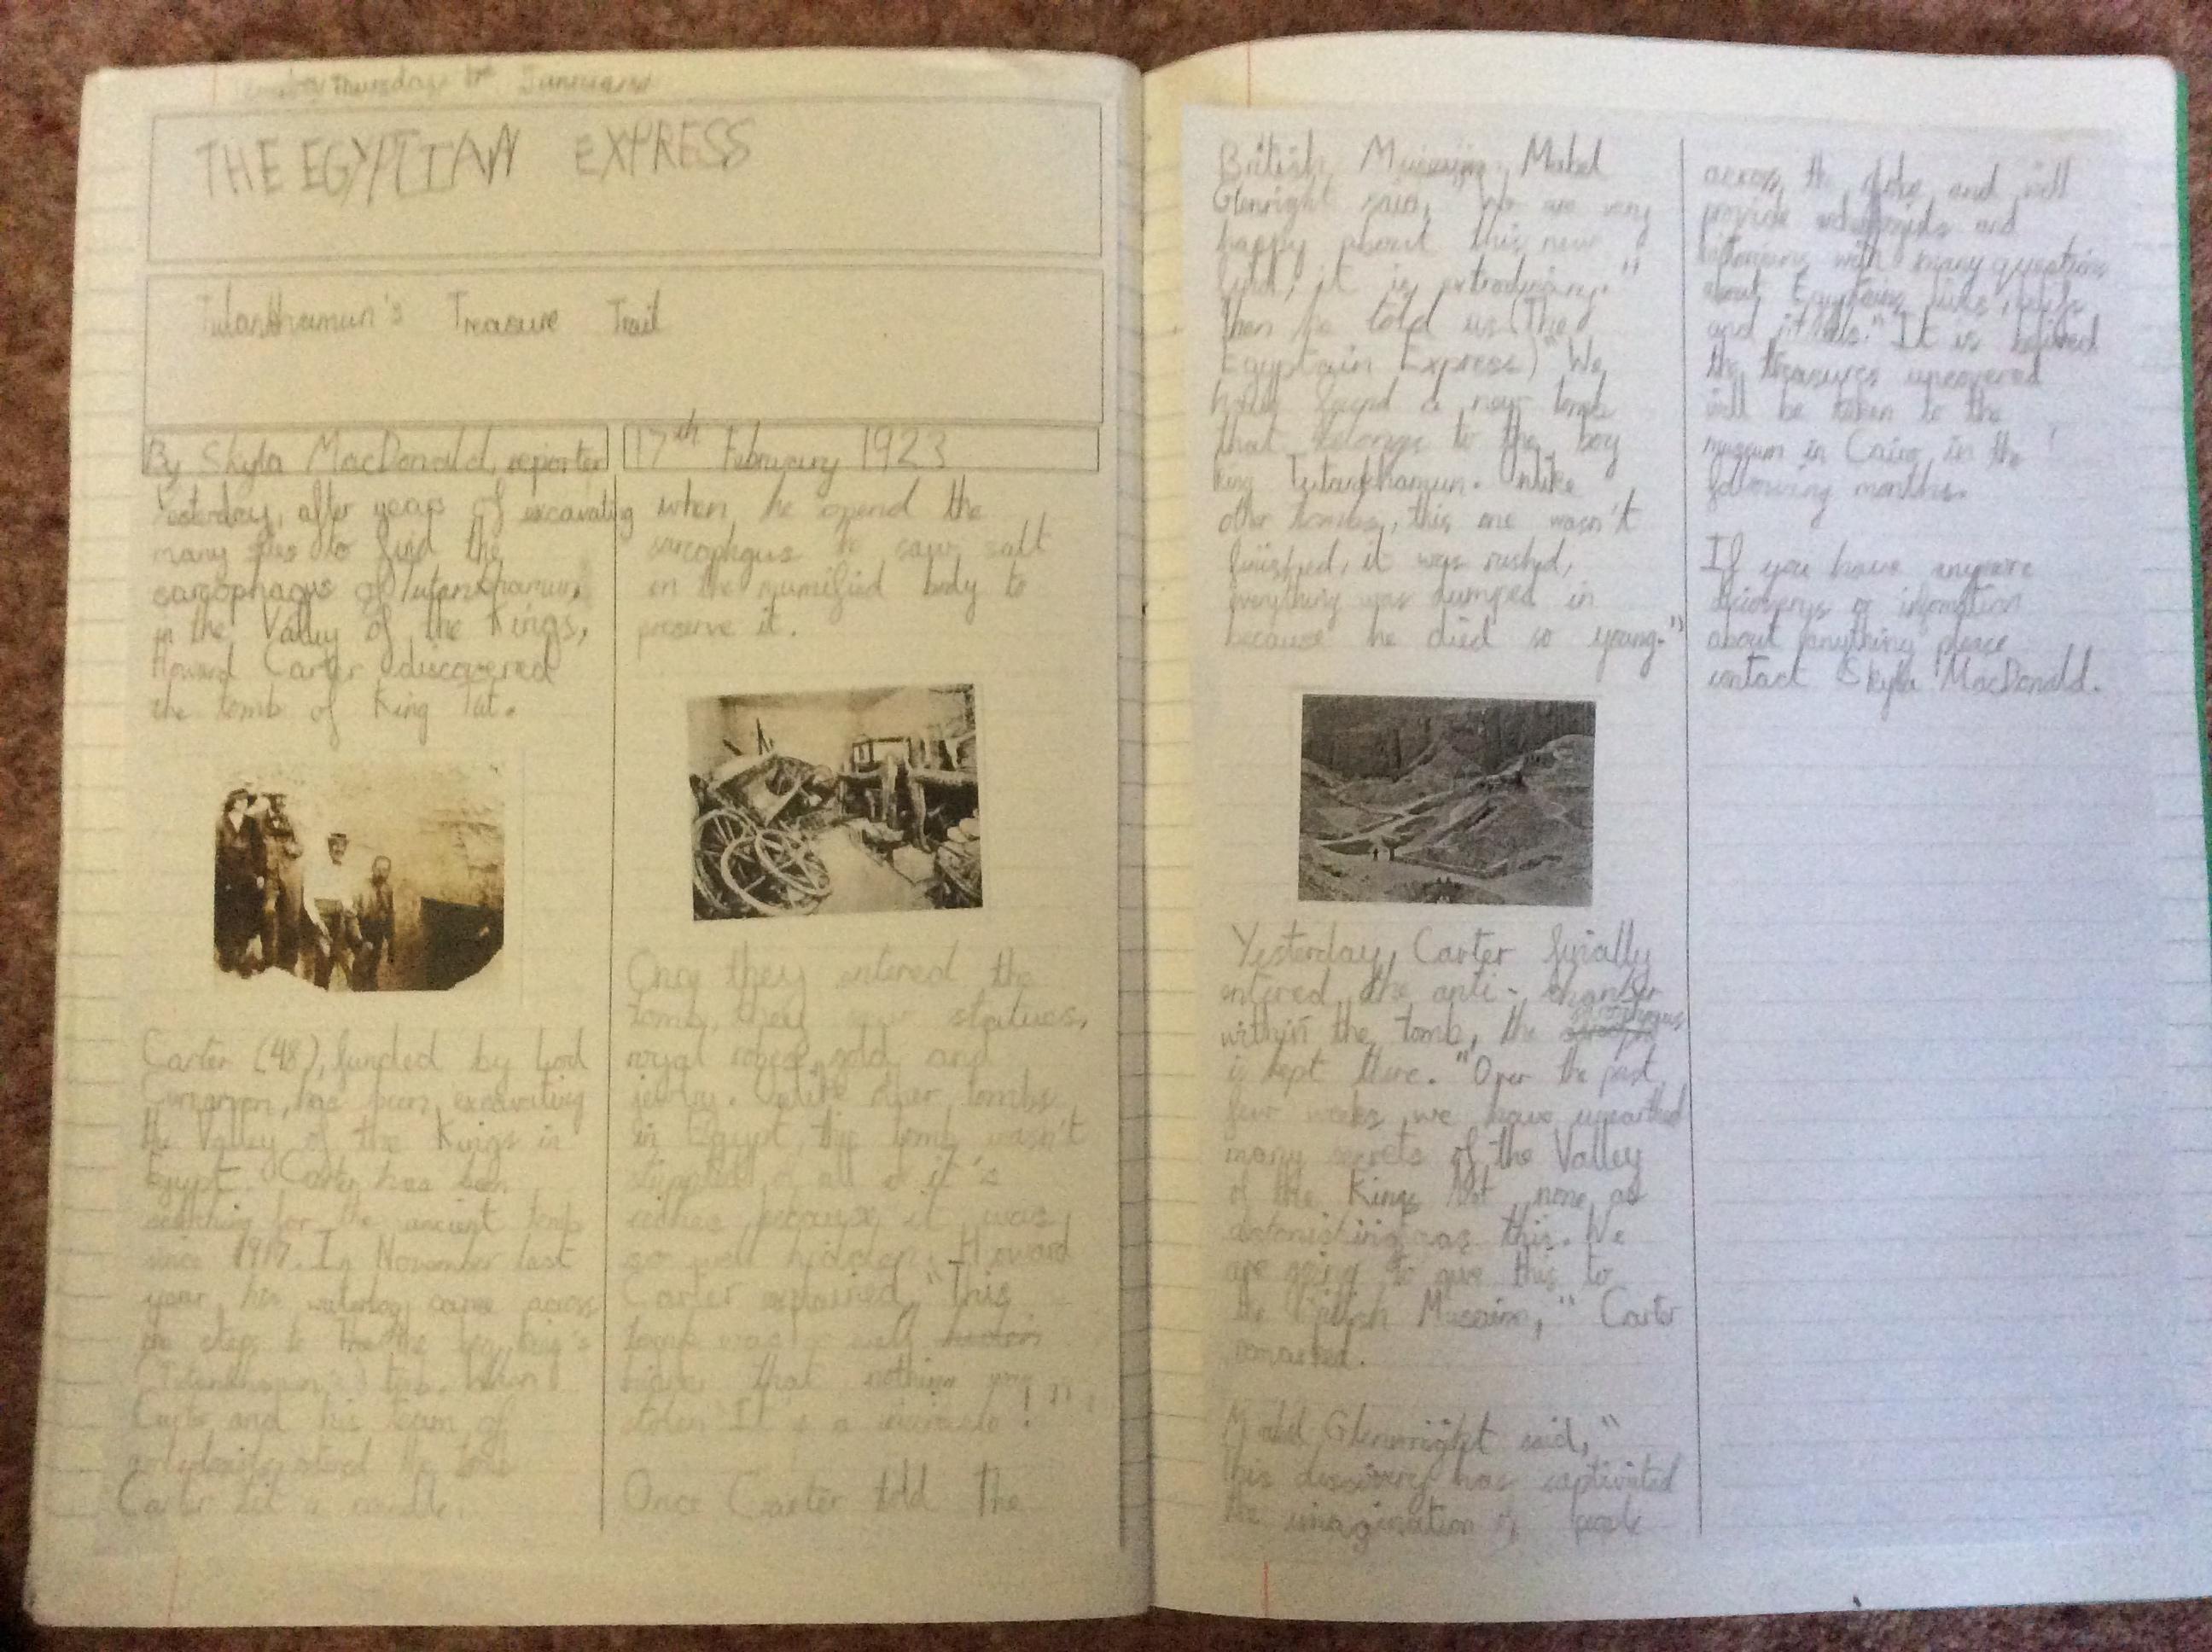 Thursday January
THE EGYPTIAN EXPRESS
Tutankhamun's Treasure Trail
By Skyla MacDonald, reporter
17th February 1923
Yesterday, after years of excavating
many sites to find the
sarcophagus of Tutankhamun,
in the Valley of the Kings,
Howard Carter discovered
the tomb of King Tat.
Carter (48), funded by Lord
has been excavating
the Valley of the Kings in
Egypt. Carter has been
searching for the ancient tomb
since 1917. In November last
year, his came across
steps to the
When
Carter and his team of
entered the tomb
Carter lit a candle,
when he opend the
he saw salt
on the mumified body to
preserve it.
Once they entered the
tomb, they saw statues,
royal robes, gold and
Unlike other tombs
in Egypt, this tomb wasn't
of all of it's
riches because it was
so well hidden. Howard
Carter explained, "This
tomb was so well
that nothing was
stolen It's a miracle!"
Once Carter told the
British Mabel
Glenright said, "We are very
happy about this new
find, it is
Then he told us (The
Egyptain Express) "We
have found a new tomb
that belongs to the boy
king Tutankhamun. Unlike
other tombs, this one wasn't
finished, it was rushed,
everything was dumped in
because he died so young."
Yesterday, Carter finally
entered the anti-chamber
within the tomb, the
is kept there. "Over the past
few weeks we have unearthed
many secrets of the Valley
of the Kings but none as
astonishing as this. We
are going to give this to
the British Carter
remarked.
Mabel Glenwright said, "
this discovery has captivated
the imagination of people
across the globe and will
provide and
historians with many questions
about
and It is believed
the treasures uncovered
will be taken to the
museum in Cairo in the
following months.
If you have anymore
discoverys or
about anything please
contact Skyla MacDonald.